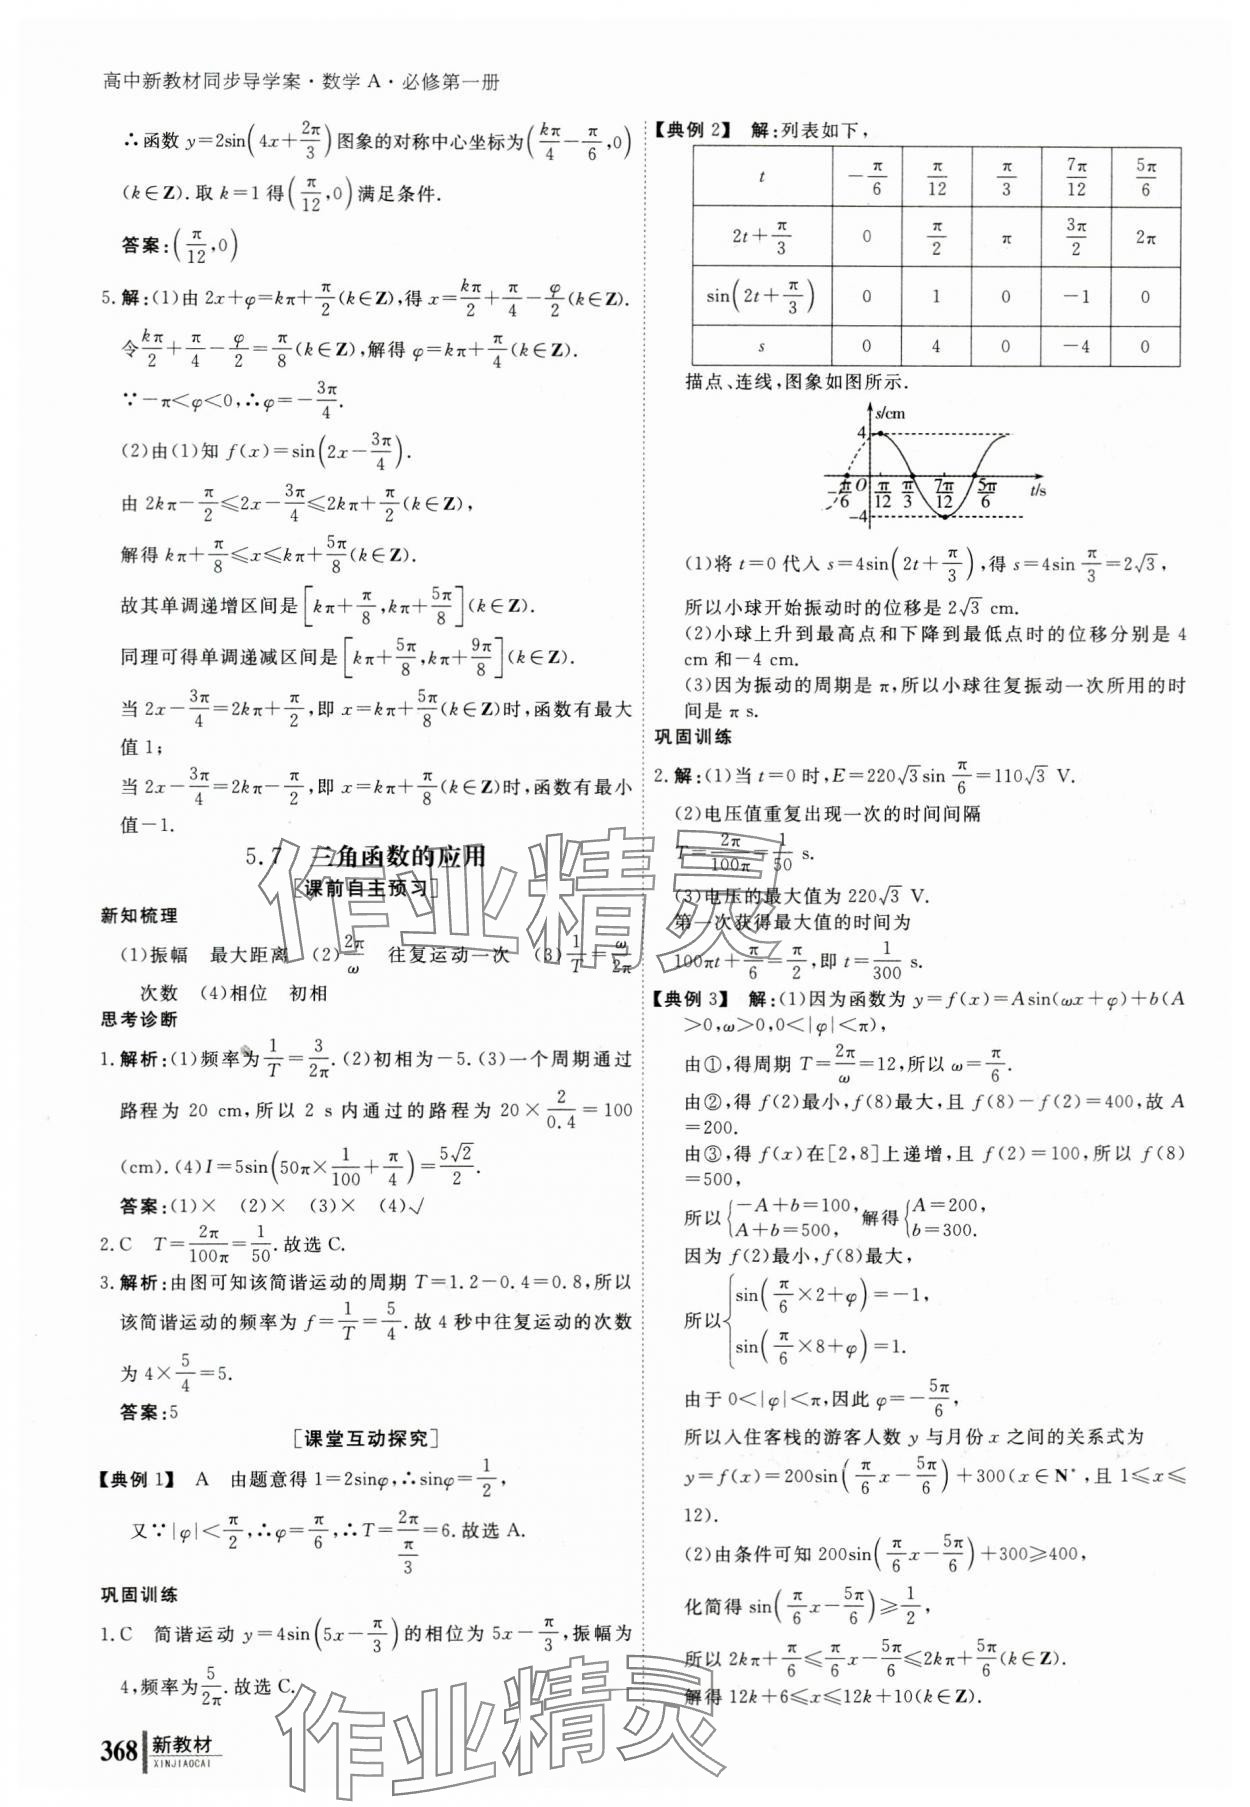 高中新教材同步导学案·数学 A·必修第一册
∴函数 y=2sin(4x+2π/3)图象的对称中心坐标为(kπ/4-π/6,0)
(k∈Z).取 k=1 得(π/12,0)满足条件.
答案:(π/12,0)
5.解:(1)由 2x+φ=kπ+π/2(k∈Z),得 x=kπ/2+π/4-φ/2(k∈Z).
令kπ/2+π/4-φ/2=π/8(k∈Z),解得 φ=kπ+π/4(k∈Z).
∵-π<φ<0,∴φ=-3π/4.
(2)由(1)知 f(x)=sin(2x-3π/4).
由 2kπ-π/2≤2x-3π/4≤2kπ+π/2(k∈Z),
解得 kπ+π/8≤x≤kπ+5π/8(k∈Z).
故其单调递增区间是[kπ+π/8,kπ+5π/8](k∈Z).
同理可得单调递减区间是[kπ+5π/8,kπ+9π/8](k∈Z).
当 2x-3π/4=2kπ+π/2,即 x=kπ+5π/8(k∈Z)时,函数有最大
值 1;
当 2x-3π/4=2kπ-π/2,即 x=kπ+π/8(k∈Z)时,函数有最小
值-1.
5.7 三角函数的应用
[课前自主预习]
新知梳理
(1)振幅 最大距离 (2)2π/ω 往复运动一次 (3)1/T=ω/2π
次数 (4)相位 初相
思考诊断
1.解析:(1)频率为1/T=3/2π.(2)初相为-5.(3)一个周期通过
路程为 20 cm,所以 2 s 内通过的路程为 20×2/0.4=100
(cm).(4)I=5sin(50π×1/100+π/4)=5√2/2.
答案:(1)× (2)× (3)× (4)√
2.C T=2π/100π=1/50.故选 C.
3.解析:由图可知该简谐运动的周期 T=1.2-0.4=0.8,所以
该简谐运动的频率为 f=1/T=5/4.故 4 秒中往复运动的次数
为 4×5/4=5.
答案:5
[课堂互动探究]
【典例 1】 A 由题意得 1=2sinφ,∴sinφ=1/2,
又∵|φ|<π/2,∴φ=π/6,∴T=2π/(π/3)=6.故选 A.
巩固训练
1.C 简谐运动 y=4sin(5x-π/3)的相位为 5x-π/3,振幅为
4,频率为5/2π.故选 C.
368 新教材
XINJIAOCAI
【典例 2】 解:列表如下,
t -π/6 π/12 π/3 7π/12 5π/6
2t+π/3 0 π/2 π 3π/2 2π
sin(2t+π/3) 0 1 0 -1 0
s 0 4 0 -4 0
描点、连线,图象如图所示.
s/cm
4
-π/6 O π/12 π/3 7π/12 5π/6 t/s
-4
(1)将 t=0 代入 s=4sin(2t+π/3),得 s=4sin π/3=2√3,
所以小球开始振动时的位移是 2√3 cm.
(2)小球上升到最高点和下降到最低点时的位移分别是 4
cm 和-4 cm.
(3)因为振动的周期是 π,所以小球往复振动一次所用的时
间是 π s.
巩固训练
2.解:(1)当 t=0 时,E=220√3sin π/6=110√3 V.
(2)电压值重复出现一次的时间间隔
T=2π/100π=1/50 s.
(3)电压的最大值为 220√3 V.
第一次获得最大值的时间为
100πt+π/6=π/2,即 t=1/300 s.
【典例 3】 解:(1)因为函数为 y=f(x)=Asin(ωx+φ)+b(A
>0,ω>0,0<|φ|<π),
由①,得周期 T=2π/ω=12,所以 ω=π/6.
由②,得 f(2)最小,f(8)最大,且 f(8)-f(2)=400,故 A
=200.
由③,得 f(x)在[2,8]上递增,且 f(2)=100,所以 f(8)
=500,
所以{-A+b=100, A+b=500, 解得{A=200, b=300.
因为 f(2)最小,f(8)最大,
所以{sin(π/6×2+φ)=-1,
sin(π/6×8+φ)=1.
由于 0<|φ|<π,因此 φ=-5π/6,
所以入住客栈的游客人数 y 与月份 x 之间的关系式为
y=f(x)=200sin(π/6x-5π/6)+300(x∈N*,且 1≤x≤
12).
(2)由条件可知 200sin(π/6x-5π/6)+300≥400,
化简得 sin(π/6x-5π/6)≥1/2,
所以 2kπ+π/6≤π/6x-5π/6≤2kπ+5π/6(k∈Z).
解得 12k+6≤x≤12k+10(k∈Z).
作业精灵
作业精灵